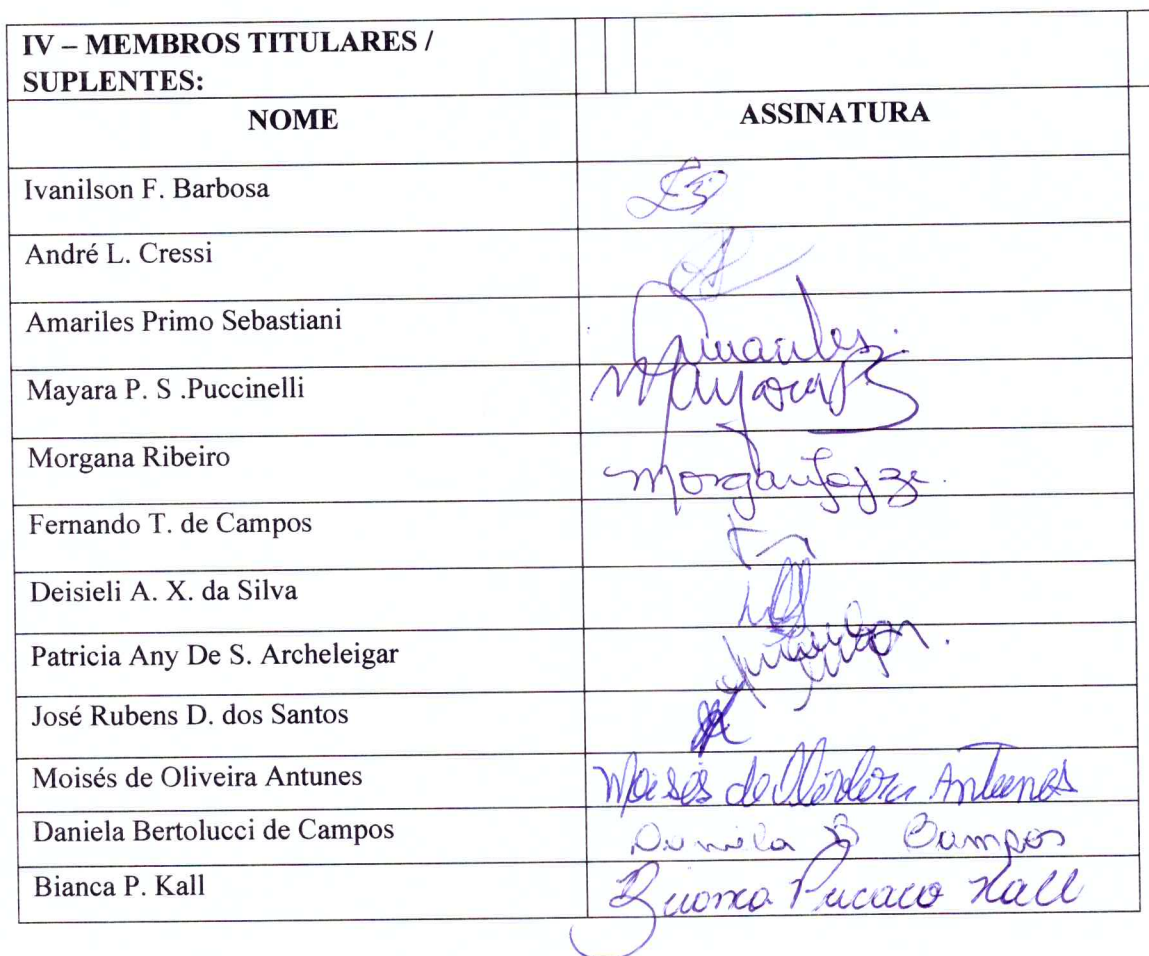 IV – MEMBROS TITULARES /
SUPLENTES:
NOME ASSINATURA
Ivanilson F. Barbosa
André L. Cressi
Amariles Primo Sebastiani Amariles.
Mayara P. S .Puccinelli
Morgana Ribeiro
Fernando T. de Campos
Deisieli A. X. da Silva
Patricia Any De S. Archeleigar
José Rubens D. dos Santos
Moisés de Oliveira Antunes Moisés de Oliveira Antunes
Daniela Bertolucci de Campos Daniela B Campos
Bianca P. Kall Bianca Kall